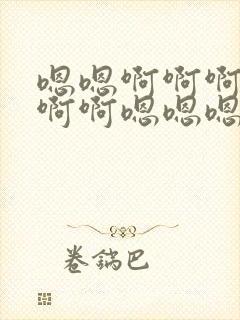 嗯嗯啊啊啊
啊啊嗯嗯嗯
卷鍋巴